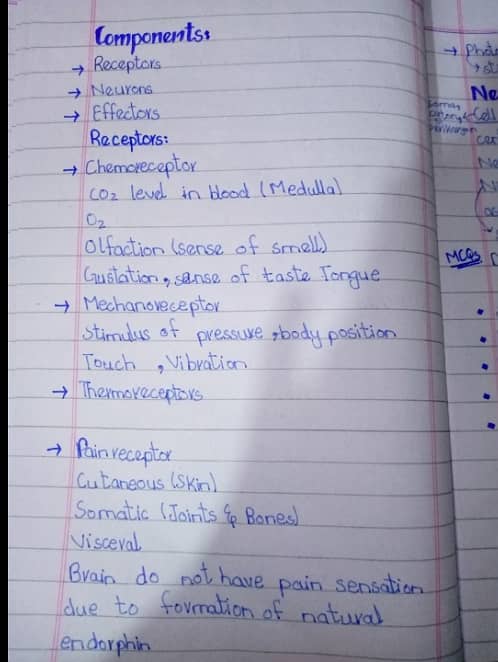 Components:
→ Receptors
→ Neurons
→ Effectors
Receptors:
→ Chemoreceptor
CO2 level in blood (Medulla)
O2
Olfaction (sense of smell)
Gustation, sense of taste Tongue
→ Mechanoreceptor
Stimulus of pressure, body position
Touch, Vibration
→ Thermoreceptors
→ Pain receptor
Cutaneous (Skin)
Somatic (Joints & Bones)
Visceral
Brain do not have pain sensation
due to formation of natural
endorphin
→
Ne
Cell
MCQs